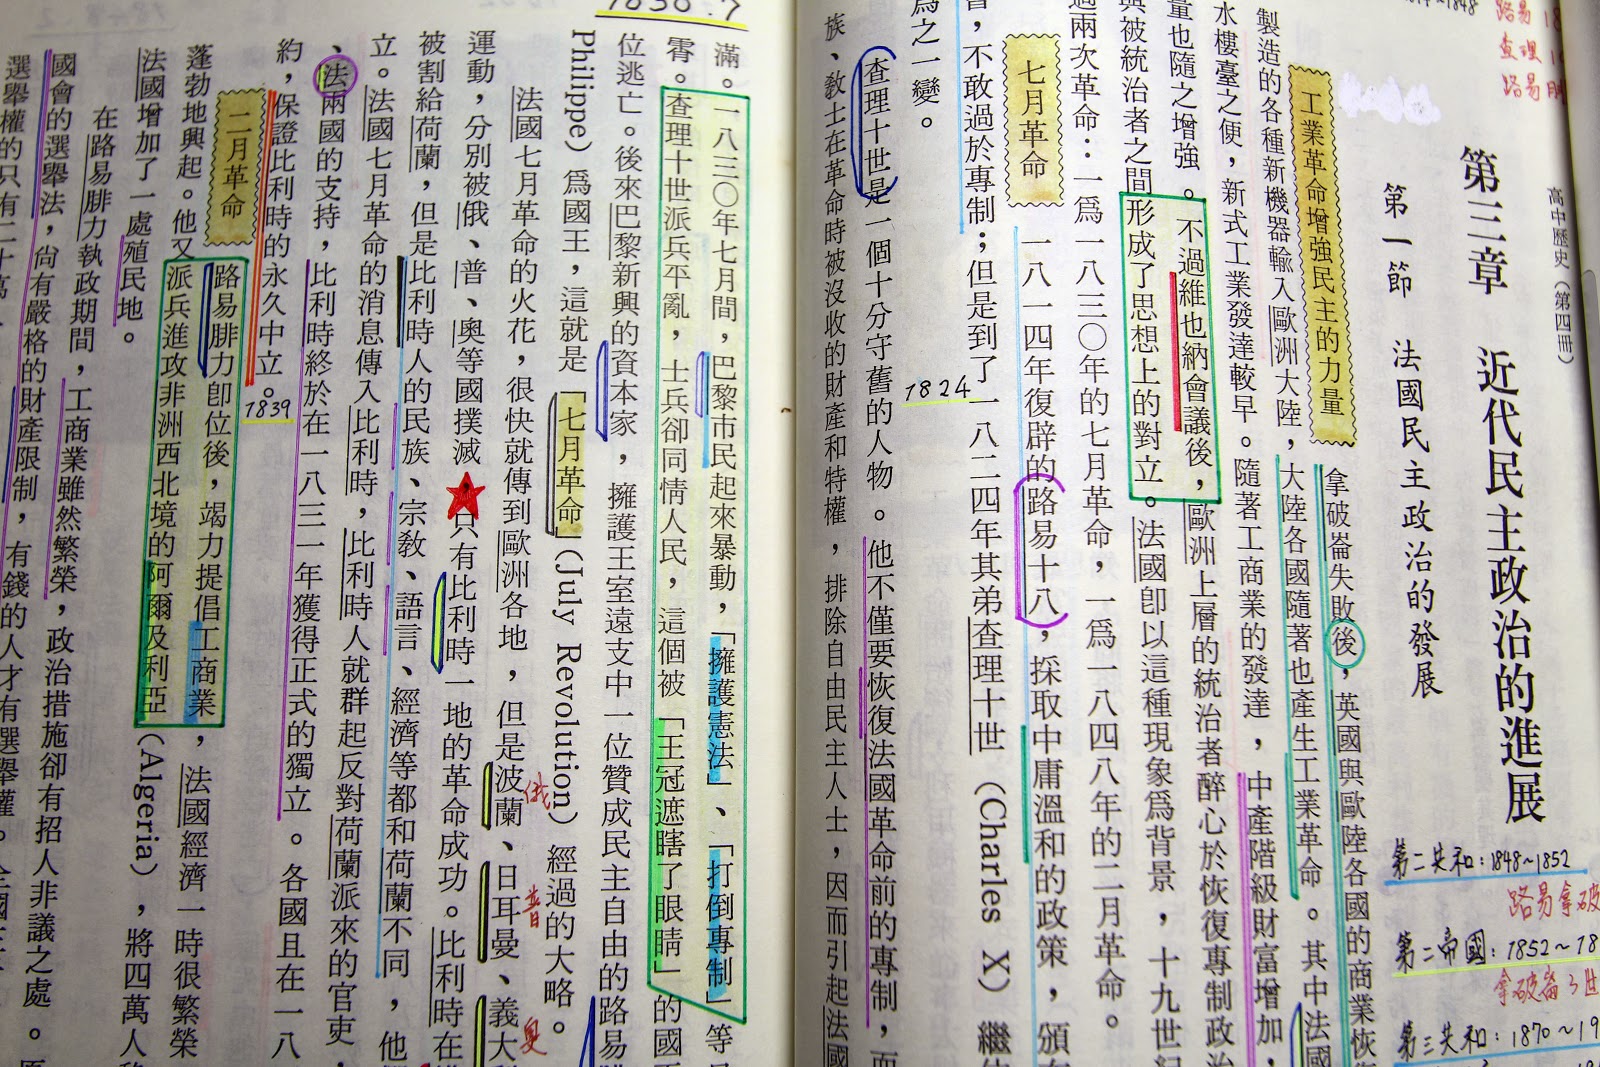 路易
查理
路易
高中歷史（第四冊）
第三章　近代民主政治的進展
第一節　法國民主政治的發展
第二共和：1848~1852
路易拿破
第二帝國：1852~18
拿破崙3世
第三共和：1870~19
工業革命增強民主的力量
拿破崙失敗後，英國與歐陸各國的商業恢
製造的各種新機器輸入歐洲大陸，大陸各國隨著也產生工業革命。其中法國
水樓臺之便，新式工業發達較早。隨著工商業的發達，中產階級財富增加，
量也隨之增強。不過維也納會議後，歐洲上層的統治者醉心於恢復專制政治
與被統治者之間形成了思想上的對立。法國卽以這種現象爲背景，十九世紀
過兩次革命：一爲一八三〇年的七月革命，一爲一八四八年的二月革命。
七月革命
一八一四年復辟的路易十八，採取中庸溫和的政策，頒
，不敢過於專制；但是到了一八二四年其弟查理十世（Charles X）繼
爲之一變。
1824
查理十世是一個十分守舊的人物。他不僅要恢復法國革命前的專制，而
族、敎士在革命時被沒收的財產和特權，排除自由民主人士，因而引起法國
1830.7
滿。一八三〇年七月間，巴黎市民起來暴動，「擁護憲法」、「打倒專制」等
霄。查理十世派兵平亂，士兵卻同情人民，這個被「王冠遮瞎了眼睛」的國
位逃亡。後來巴黎新興的資本家，擁護王室遠支中一位贊成民主自由的路易
Philippe）爲國王，這就是「七月革命」（July Revolution）經過的大略。
法國七月革命的火花，很快就傳到歐洲各地，但是波蘭、日耳曼、義大
俄
普
奧
運動，分別被俄、普、奧等國撲滅，只有比利時一地的革命成功。比利時在
被割給荷蘭，但是比利時人的民族、宗敎、語言、經濟等都和荷蘭不同，他
立。法國七月革命的消息傳入比利時，比利時人就群起反對荷蘭派來的官吏，
、法兩國的支持，比利時終於在一八三一年獲得正式的獨立。各國且在一八
約，保證比利時的永久中立。
1839
二月革命
路易腓力卽位後，竭力提倡工商業，法國經濟一時很繁榮
蓬勃地興起。他又派兵進攻非洲西北境的阿爾及利亞（Algeria），將四萬人
法國增加了一處殖民地。
在路易腓力執政期間，工商業雖然繁榮，政治措施卻有招人非議之處。
國會的選舉法，尚有嚴格的財產限制，有錢的人才有選舉權。全國
選舉權的只有二十萬